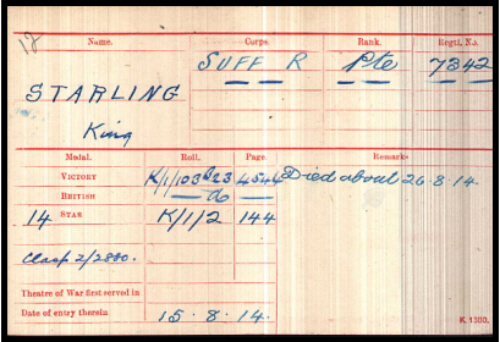 12
Name. Corps. Rank. Regtl. No.
SUFF R Pte 7342
STARLING
King
Medal. Roll. Page. Remarks
VICTORY K/1/103B23 4544 Died about 26.8.14
BRITISH — do —
14 STAR K/1/2 144
Clasp 2/2880.
Theatre of War first served in
Date of entry therein 15.8.14.
K. 1380.